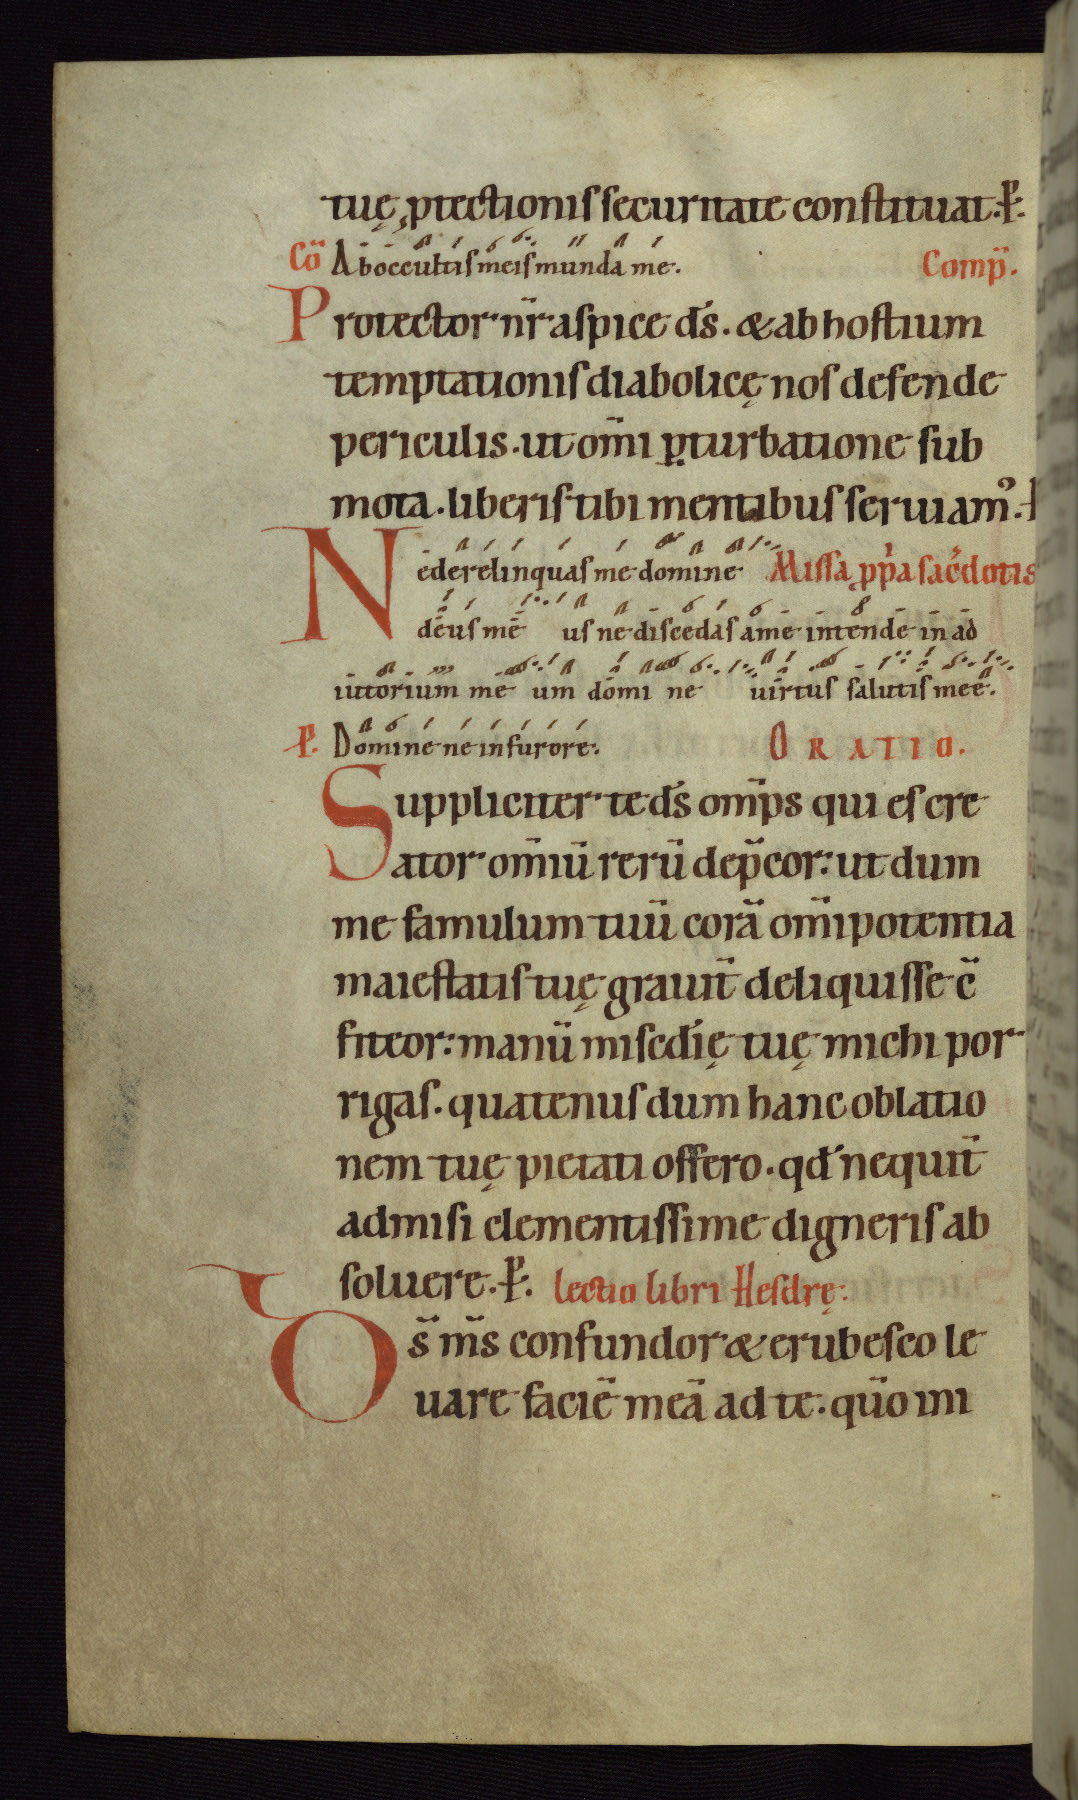 tuę ꝓtectionis securitate constituat. P.
Cō Ab occultis meis munda me. Comp̄.
Protector nr̄ aspice ds̄. & ab hostium
temptationis diabolicę nos defende
periculis. ut om̄i ꝑturbatione sub
mota. liberis tibi mentibus seruiam᷒.
Ne derelinquas me domine Missa ꝓp̄a sac̄dotis
deus me us ne discedas a me intende in ad
iutorium me um domi ne uirtus salutis meę.
P. Domine ne in furore. ORATIO.
Suppliciter te ds̄ omp̄s qui es cre
ator om̄iū rerū dep̄cor: ut dum
me famulum tuū corā om̄ipotentia
maiestatis tuę grauit̄ deliquisse c̄
fiteor: manū misedi̅ę tuę michi por
rigas. quatenus dum hanc oblatio
nem tuę pietati offero. qd̄ nequit̄
admisi clementissime digneris ab
soluere. P. lectio libri Hesdrę.
Ds̄ ms̄ confundor & erubesco le
uare faciē meā ad te. qūo ini